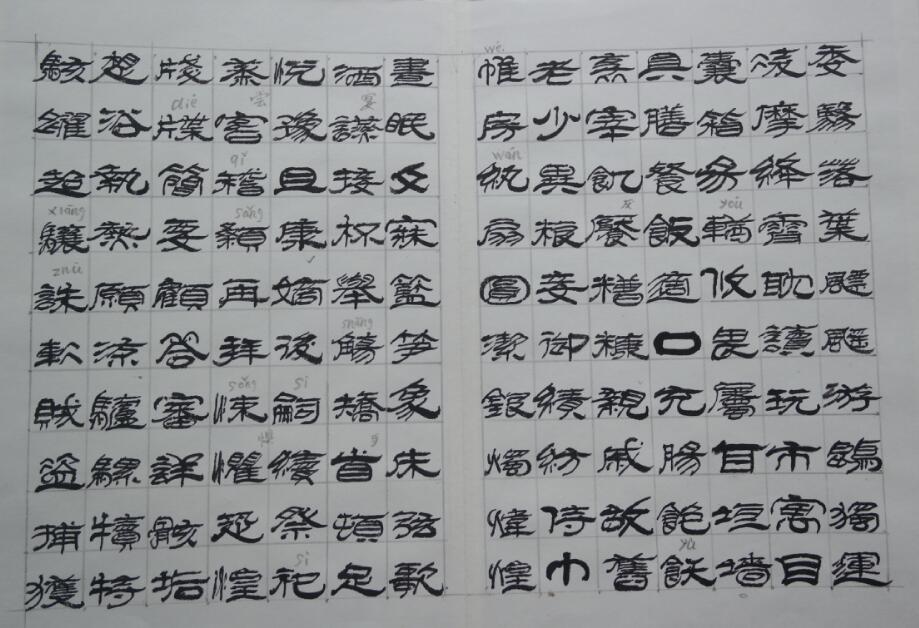 委翳落葉飄颻游鵾獨運
凌摩絳霄耽讀玩市寓目
囊箱易輶攸畏屬耳垣墻
具膳餐飯適口充腸飽飫
烹宰飢厭糟糠親戚故舊
老少異糧妾御績紡侍巾
帷房紈扇圓潔銀燭煒煌
晝眠夕寐籃筍象床弦歌
酒讌接杯舉觴矯首頓足
悅豫且康嫡後嗣續祭祀
蒸嘗稽顙再拜悚懼恐惶
牋牒簡要顧答審詳骸垢
想浴執熱願涼驢騾犢特
駭躍超驤誅斬賊盜捕獲